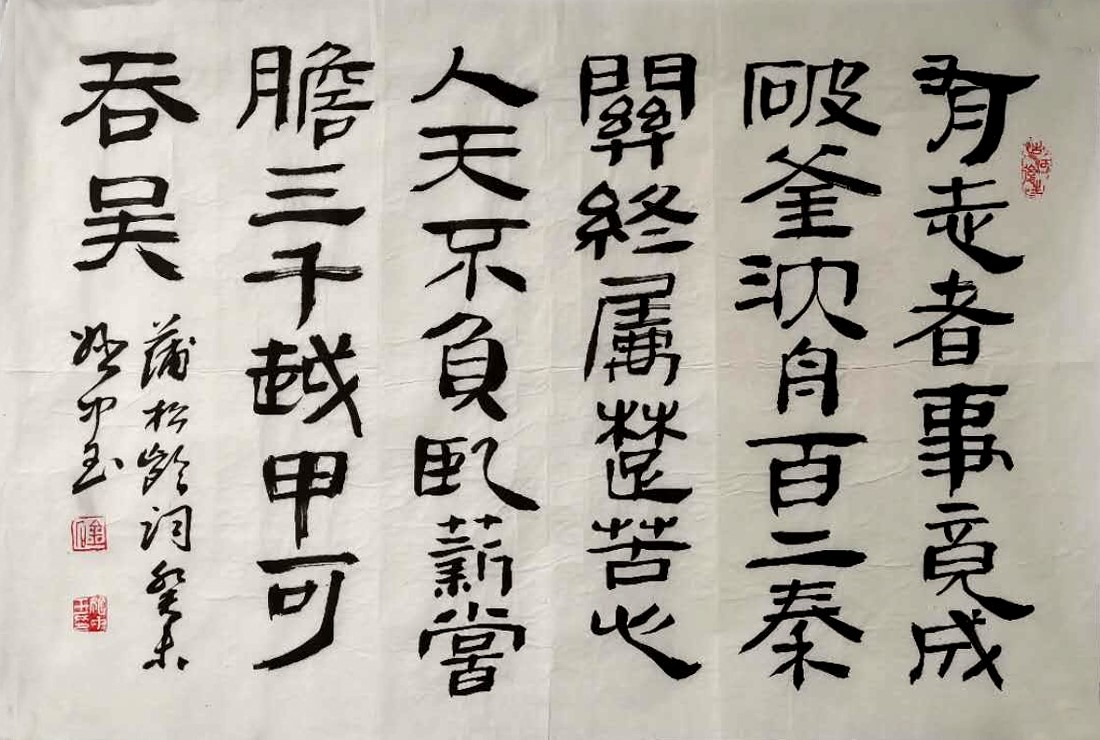 有志者事竟成
破釜沈舟百二秦
關終屬楚苦心
人天不負臥薪嘗
膽三千越甲可
吞吳
蒲松齡詞癸未
姚中玉